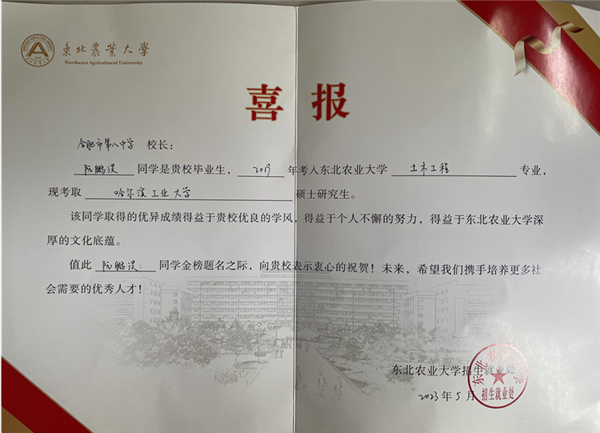 東北農業大學
Northeast Agricultural University
喜报
合肥市第八中学 校长:
阮鹏溟 同学是贵校毕业生, 2019 年考入东北农业大学 土木工程 专业,
现考取 哈尔滨工业大学 硕士研究生。
该同学取得的优异成绩得益于贵校优良的学风,得益于个人不懈的努力,得益于东北农业大学深
厚的文化底蕴。
值此 阮鹏溟 同学金榜题名之际,向贵校表示衷心的祝贺!未来,希望我们携手培养更多社
会需要的优秀人才!
东北农业大学招生就业处
2023年5月
招生就业处